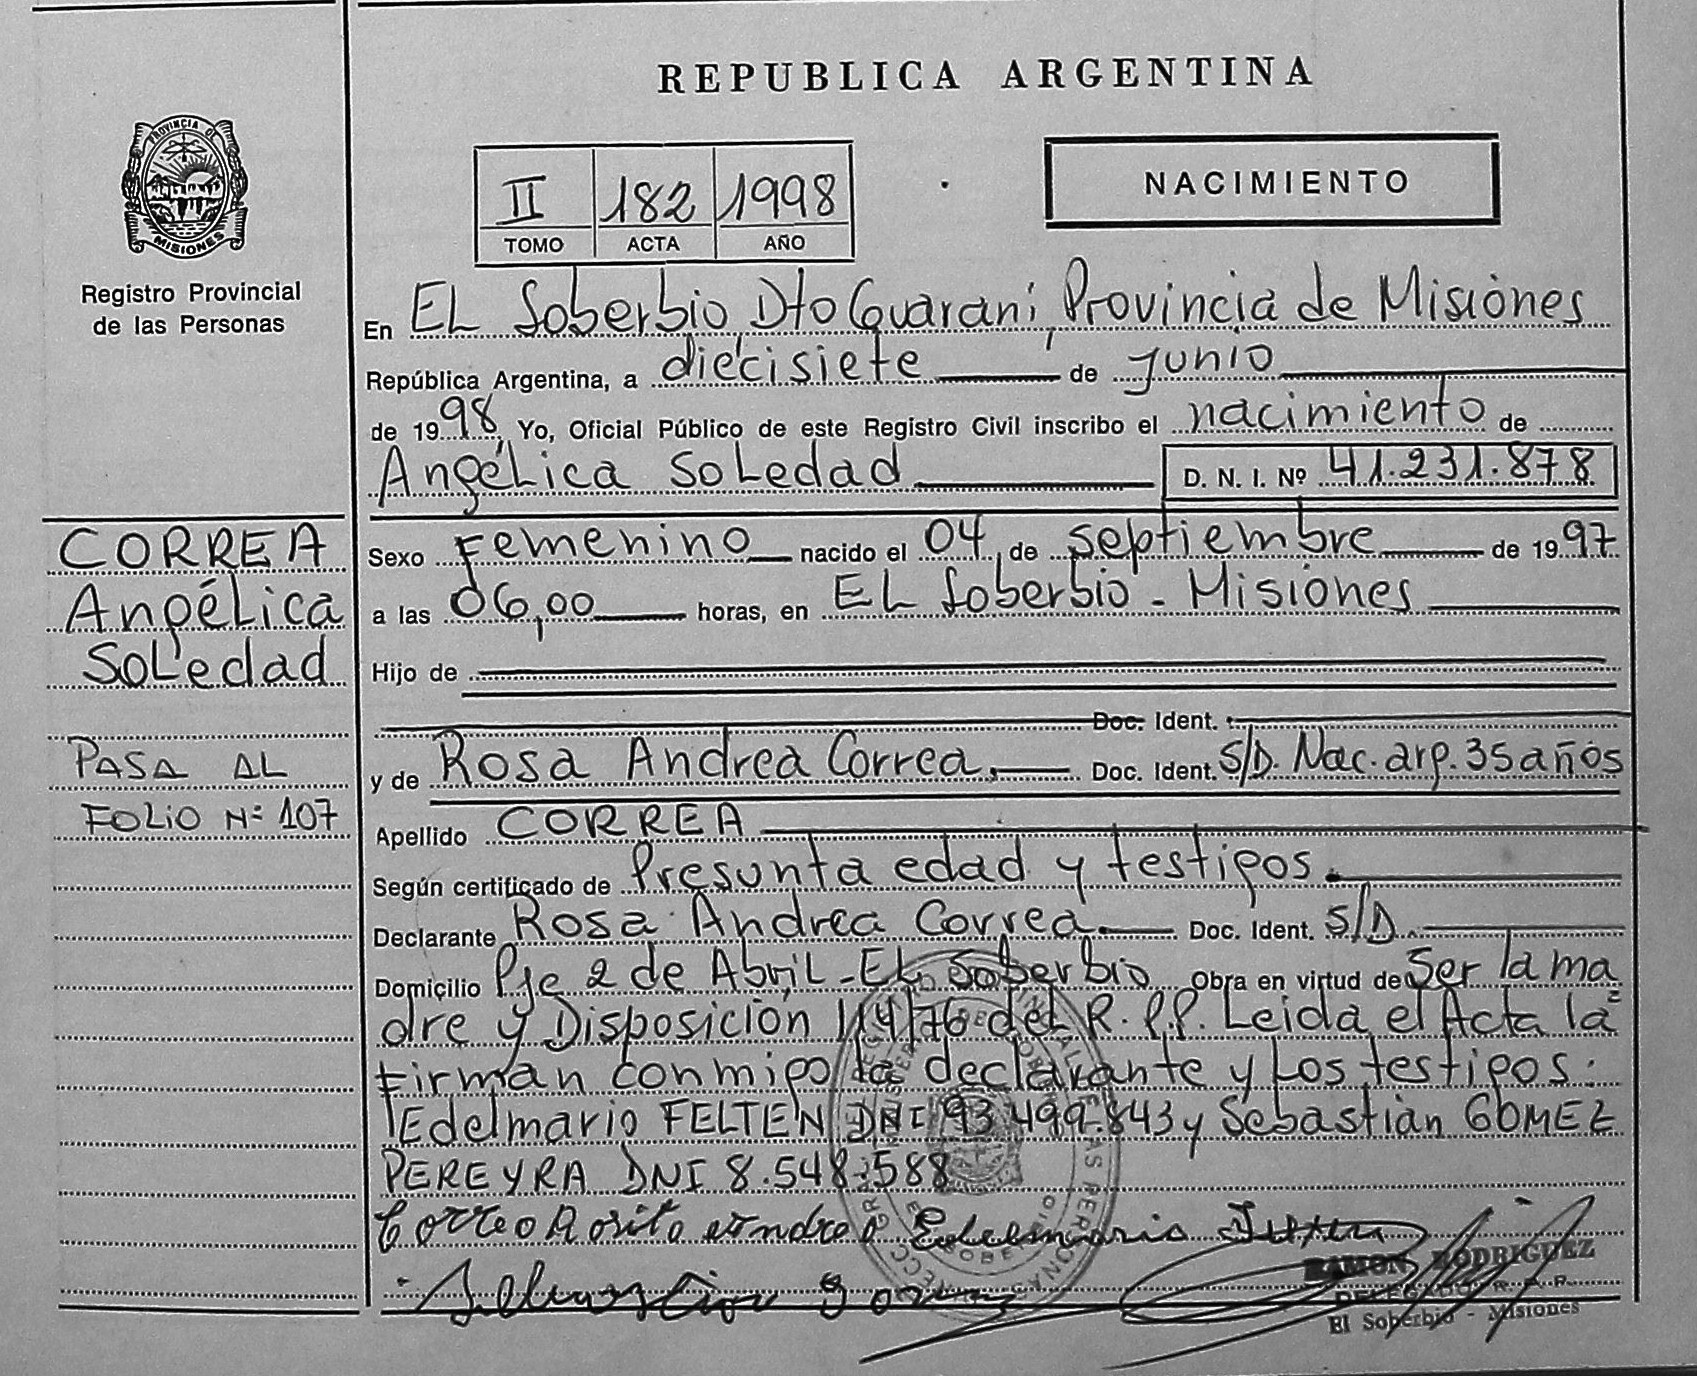 REPUBLICA ARGENTINA
PROVINCIA DE
MISIONES
Registro Provincial
de las Personas
II 182 1998
TOMO ACTA AÑO
NACIMIENTO
En EL Soberbio Dto Guaraní, Provincia de Misiones
República Argentina, a diecisiete de junio
de 1998, Yo, Oficial Público de este Registro Civil inscribo el nacimiento de
Angélica Soledad D. N. I. Nº 41.231.878
CORREA
Angélica
Soledad
PASA AL
FOLIO Nº 107
Sexo Femenino nacido el 04 de septiembre de 1997
a las 06,00 horas, en EL Soberbio - Misiones
Hijo de
Doc. Ident.
y de Rosa Andrea Correa. Doc. Ident. S/D. Nac. arg. 35 años
Apellido CORREA
Según certificado de Presunta edad y testigos.
Declarante Rosa Andrea Correa. Doc. Ident. S/D.
Domicilio Pje 2 de Abril - EL Soberbio Obra en virtud de Ser la ma
dre y Disposición 114/76 del R.P.P. Leida el Acta la
firman conmigo la declarante y los testigos:
Edelmario FELTEN DNI 93.499.843 y Sebastián GOMEZ
PEREYRA DNI 8.548.588
Correa Rosita andrea Edelmario
RAMON RODRIGUEZ
DELEGADO R. P. P.
El Soberbio - Misiones